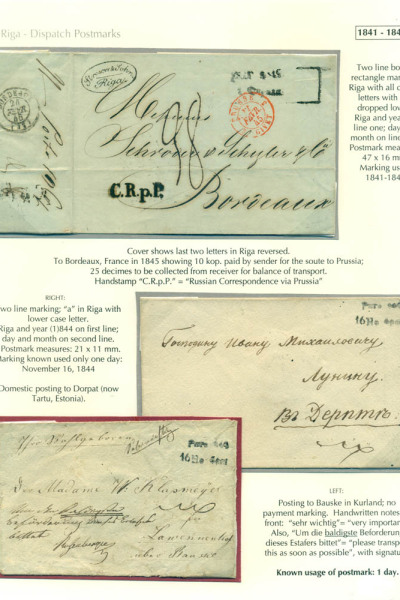 Riga - Dispatch Postmarks
1841 - 184
Two line bo
rectangle mar
Riga with all c
letters with
dropped low
Riga and yea
line one; day
month on line
Postmark meas
47 x 16 m
Marking us
1841-184
Riga
Messieurs
Schröder & Schyler & Co
38
C.R.p.P.
Bordeaux
Cover shows last two letters in Riga reversed.
To Bordeaux, France in 1845 showing 10 kop. paid by sender for the route to Prussia;
25 decimes to be collected from receiver for balance of transport.
Handstamp “C.R.p.P.” = “Russian Correspondence via Prussia”
RIGHT:
wo line marking; “a” in Riga with
lower case letter.
Riga and year (1)844 on first line;
day and month on second line.
Postmark measures: 21 x 11 mm.
Marking known used only one day:
November 16, 1844
Domestic posting to Dorpat (now
Tartu, Estonia).
Господину Ивану Михайловичу
Лунину.
Въ Дерптѣ.
16 Но
Der Madame W. Klasmeyer
LEFT:
Posting to Bauske in Kurland; no
payment marking. Handwritten notes
front: “sehr wichtig”= “very importan
Also, “Um die baldigste Beforderun
dieses Estafers bittet”= “please transp
this as soon as possible”, with signatu
Known usage of postmark: 1 day.